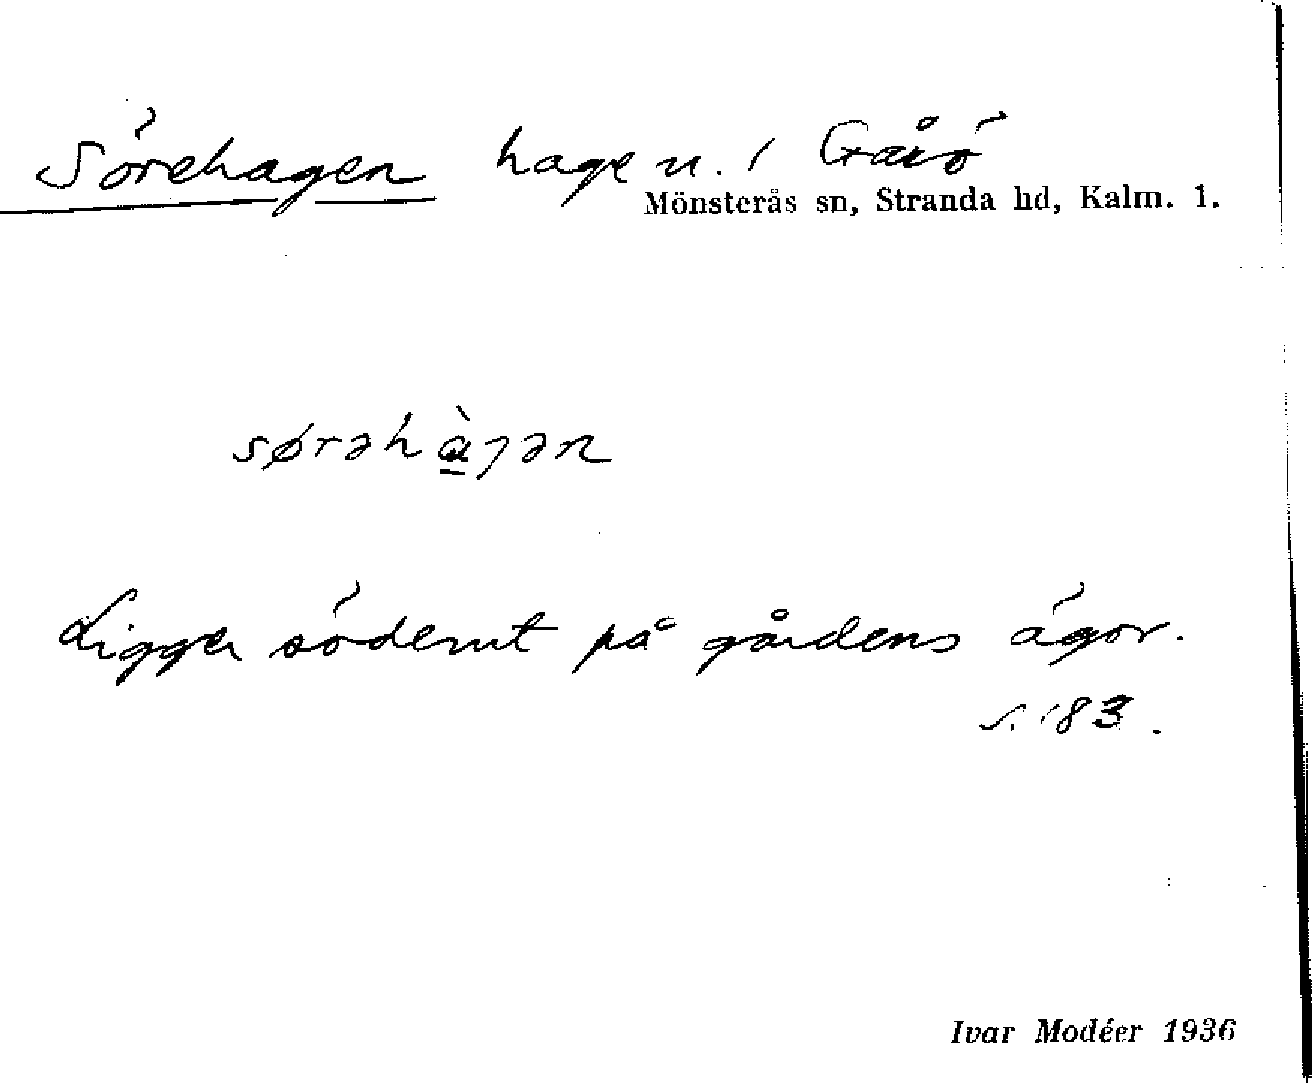 Sörehagen hage n. 1 Gåsö
Mönsterås sn, Stranda hd, Kalm. l.
sørəhàgən
Ligger söderut på gårdens ägor.
s. 183.
Ivar Modéer 1936